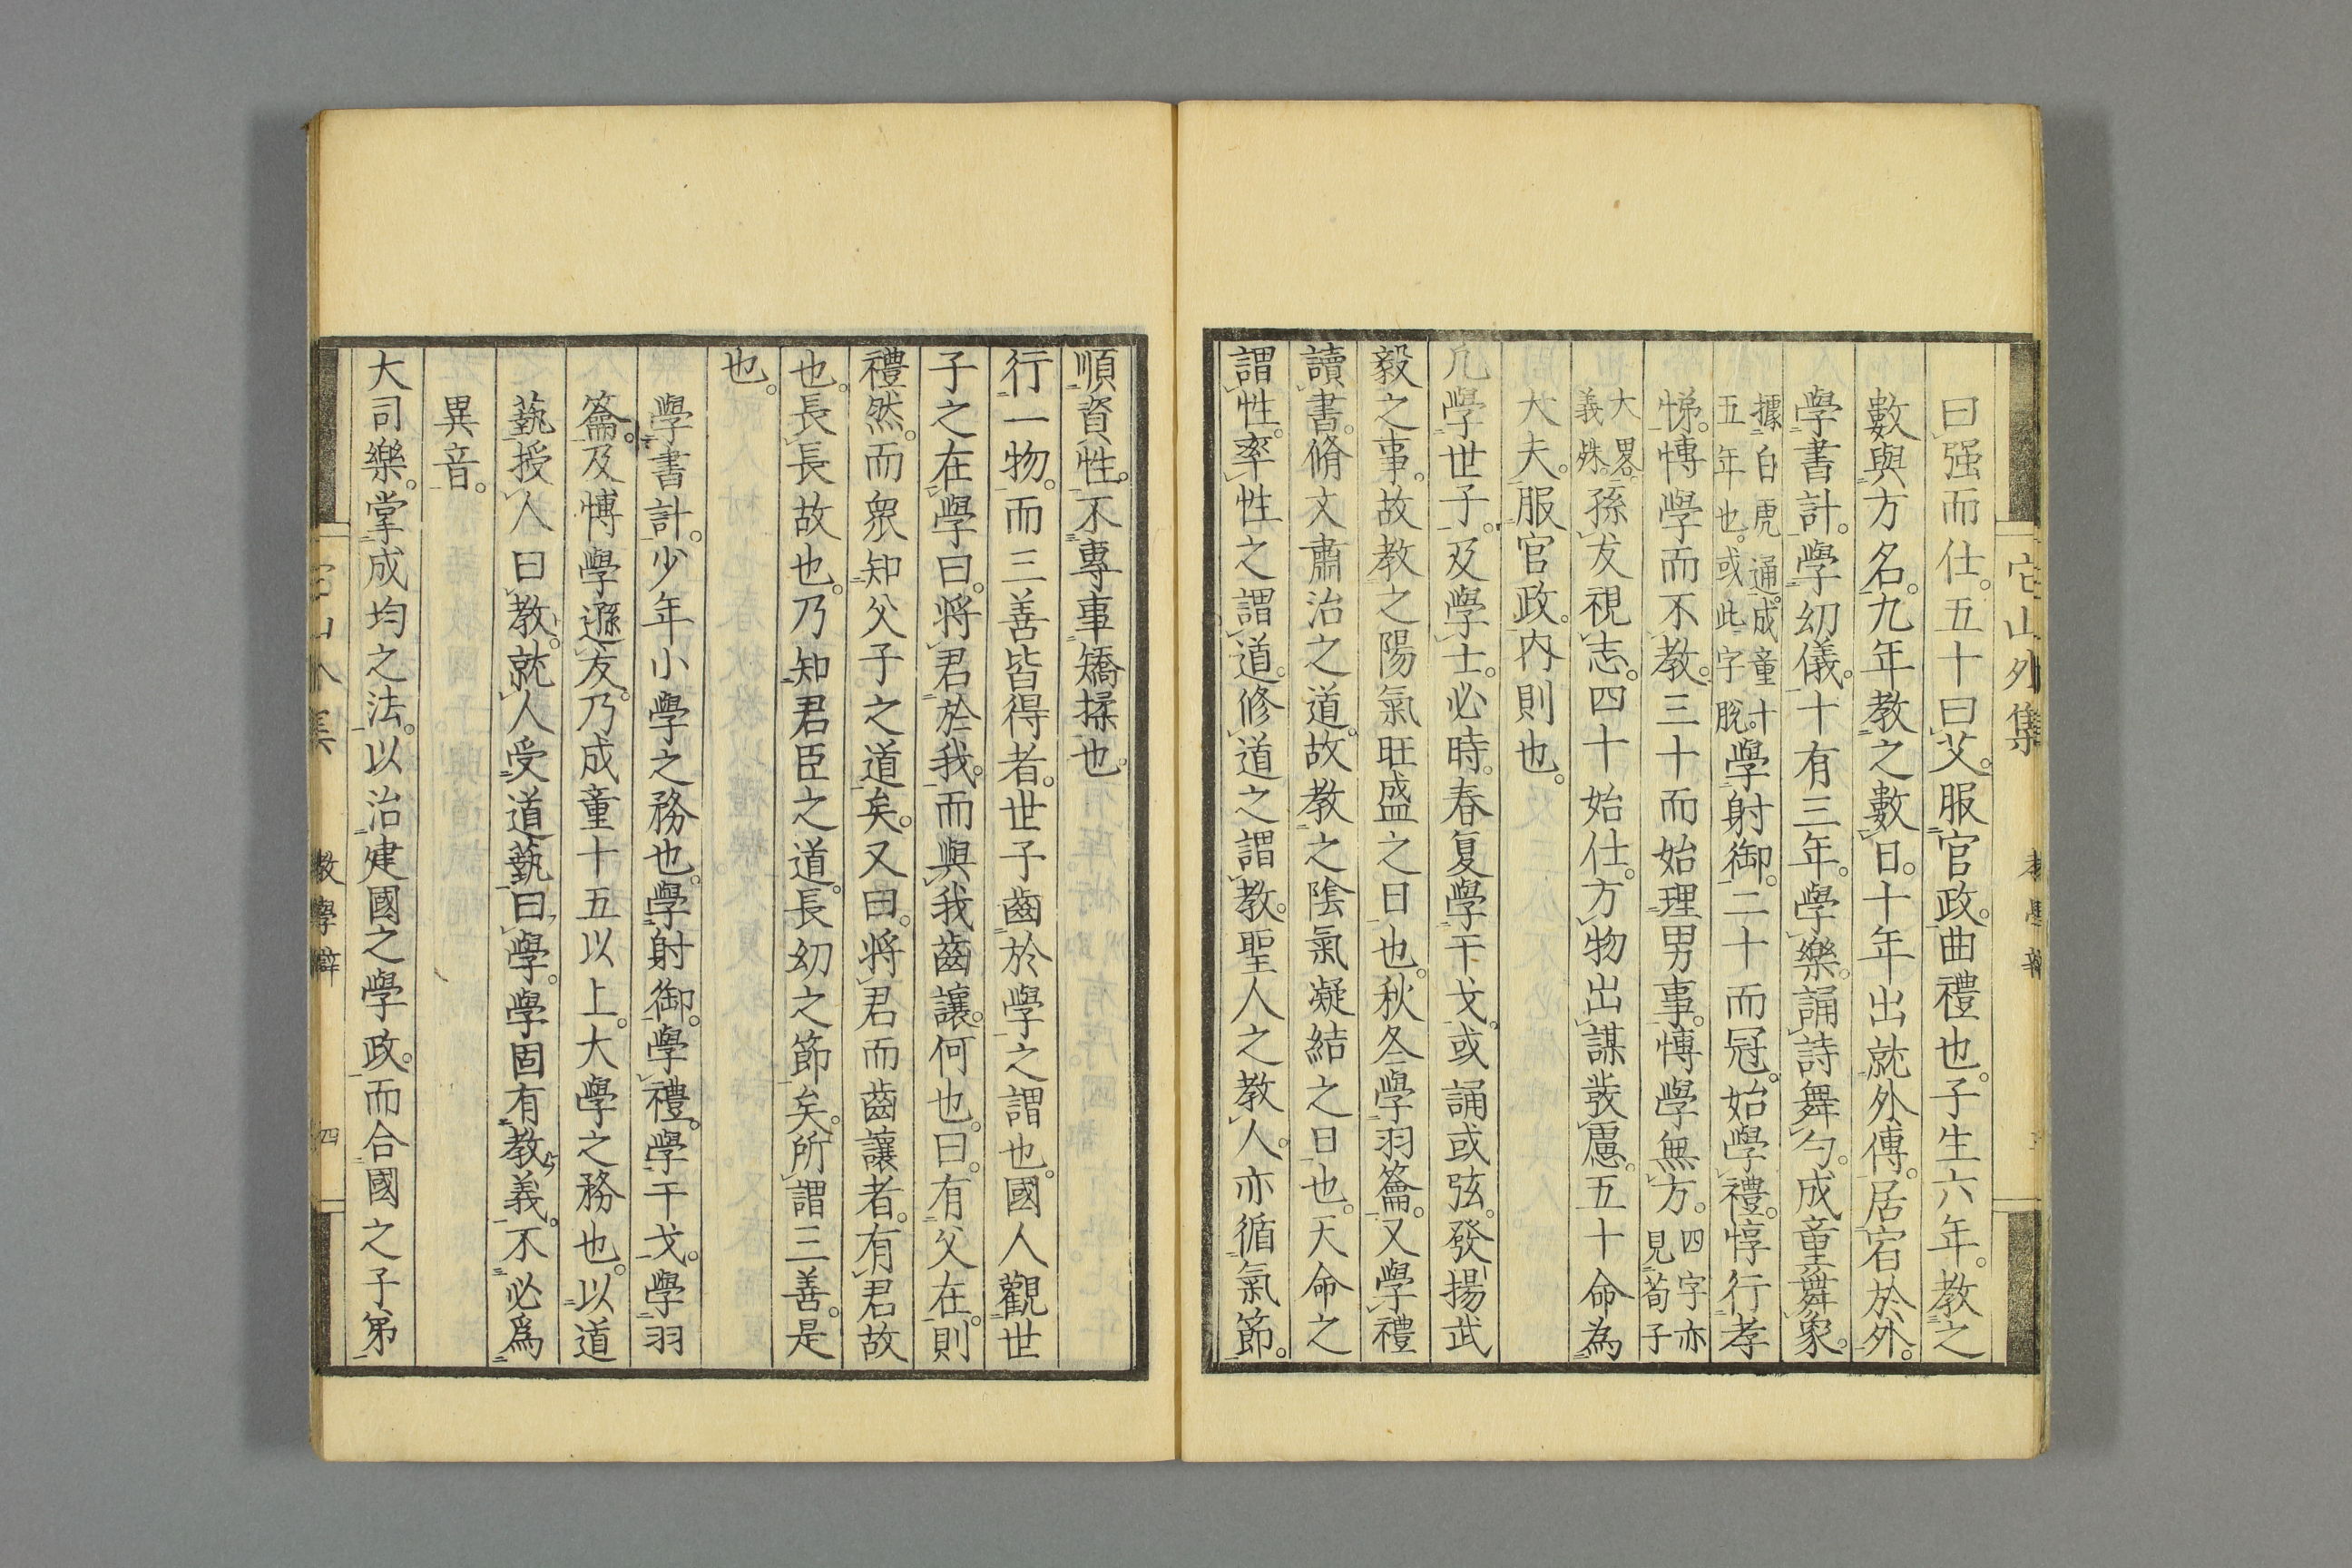 它山外集
曰强而仕。五十曰艾。服官政。曲禮也。子生六年。教之
數與方名。九年教之數日。十年出就外傅。居宿於外。
學書計。學幼儀。十有三年。學樂。誦詩舞勺。成童舞象。
據白虎通。成童十
五年也。或此字脫。
學射御。二十而冠。始學禮。惇行孝
悌。博學而不教。三十而始理男事。博學無方。
四字亦
見荀子
大畧。
義殊。
孫友視志。四十始仕。方物出謀發慮。五十命為
大夫。服官政。內則也。
凡學世子。及學士。必時。春夏學干戈。或誦或弦。發揚武
毅之事。故教之陽氣旺盛之日也。秋冬學羽籥。又學禮
讀書。脩文肅治之道。故教之陰氣凝結之日也。天命之
謂性。率性之謂道。修道之謂教。聖人之教人。亦循氣節。
順資性。不專事矯揉也。
行一物。而三善皆得者。世子齒於學之謂也。國人觀世
子之在學曰。將君於我。而與我齒讓。何也。曰。有父在。則
禮然。而衆知父子之道矣。又曰。將君而齒讓者。有君故
也。長長故也。乃知君臣之道。長幼之節矣。所謂三善。是
也。
學書計。少年小學之務也。學射御。學禮。學干戈。學羽
籥。及博學遜友。乃成童十五以上。大學之務也。以道
藝授人曰教。就人受道藝曰學。學固有教義。不必爲
異音。
大司樂。掌成均之法。以治建國之學政。而合國之子弟
教學辯
四